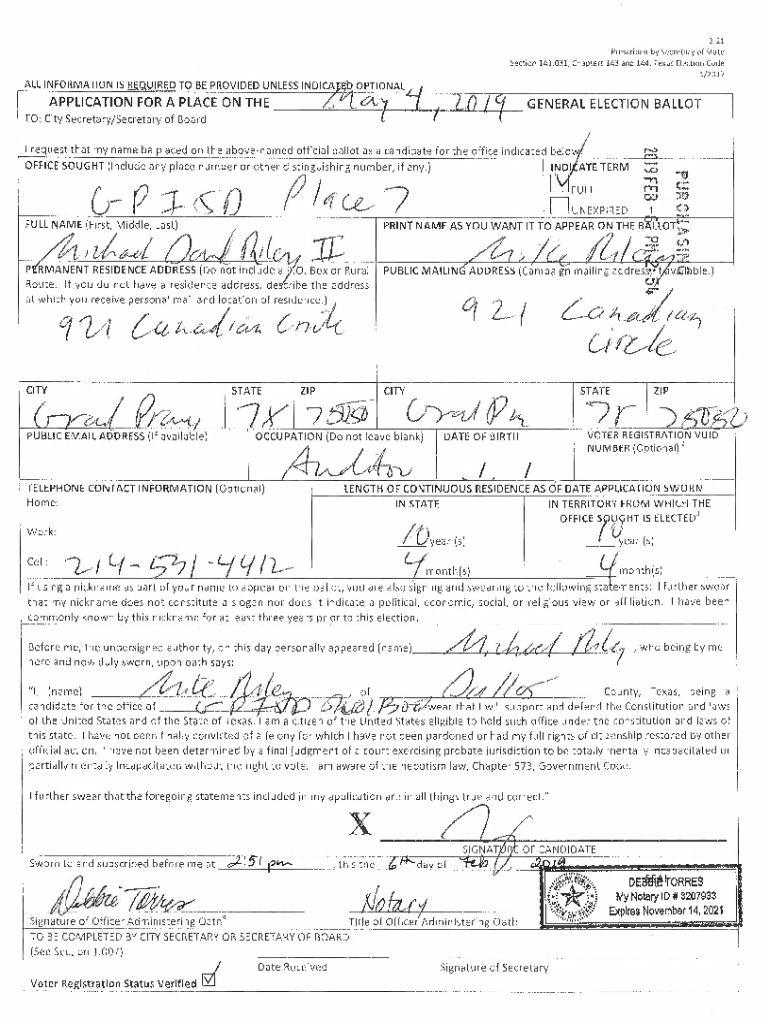 2-21
Prescribed by Secretary of State
Section 141.031, Chapters 143 and 144, Texas Election Code
1/2017
ALL INFORMATION IS REQUIRED TO BE PROVIDED UNLESS INDICATED OPTIONAL
APPLICATION FOR A PLACE ON THE May 4, 2019 GENERAL ELECTION BALLOT
TO: City Secretary/Secretary of Board
I request that my name be placed on the above-named official ballot as a candidate for the office indicated below.
OFFICE SOUGHT (Include any place number or other distinguishing number, if any.) INDICATE TERM
GPISD Place 7
FULL
UNEXPIRED
PURCHASING
2019 FEB -6 PM 2:54
FULL NAME (First, Middle, Last) PRINT NAME AS YOU WANT IT TO APPEAR ON THE BALLOT
Michael David Riley II Mike Riley
PERMANENT RESIDENCE ADDRESS (Do not include a P.O. Box or Rural Route. If you do not have a residence address, describe the address at which you receive personal mail and location of residence.)
PUBLIC MAILING ADDRESS (Campaign mailing address, if available.)
921 Canadian Circle
921 Canadian
Circle
CITY STATE ZIP CITY STATE ZIP
TX 75050 TX 75050
PUBLIC EMAIL ADDRESS (If available) OCCUPATION (Do not leave blank) DATE OF BIRTH VOTER REGISTRATION VUID
NUMBER (Optional)
Auditor / /
TELEPHONE CONTACT INFORMATION (Optional) LENGTH OF CONTINUOUS RESIDENCE AS OF DATE APPLICATION SWORN
Home: IN STATE IN TERRITORY FROM WHICH THE
OFFICE SOUGHT IS ELECTED
Work: 10 year(s) 10 year(s)
Cell: 214-531-4412 4 month(s) 4 month(s)
If using a nickname as part of your name to appear on the ballot, you are also signing and swearing to the following statements: I further swear
that my nickname does not constitute a slogan nor does it indicate a political, economic, social, or religious view or affiliation. I have been
commonly known by this nickname for at least three years prior to this election.
Before me, the undersigned authority, on this day personally appeared (name) Michael Riley, who being by me
here and now duly sworn, upon oath says:
"I, (name) Mike Riley of Dallas County, Texas, being a
candidate for the office of GPISD School Board swear that I will support and defend the Constitution and laws
of the United States and of the State of Texas. I am a citizen of the United States eligible to hold such office under the constitution and laws of
this state. I have not been finally convicted of a felony for which I have not been pardoned or had my full rights of citizenship restored by other
official action. I have not been determined by a final judgment of a court exercising probate jurisdiction to be totally mentally incapacitated or
partially mentally incapacitated without the right to vote. I am aware of the nepotism law, Chapter 573, Government Code.
I further swear that the foregoing statements included in my application are in all things true and correct."
X
SIGNATURE OF CANDIDATE
Sworn to and subscribed before me at 2:51 pm, this the 6th day of Feb, 2019
Debbie Torres Notary
SEAL
DEBBIE TORRES
My Notary ID # 3207933
Expires November 14, 2021
Signature of Officer Administering Oath Title of Officer Administering Oath
TO BE COMPLETED BY CITY SECRETARY OR SECRETARY OF BOARD
(See Section 1.007)
Date Received Signature of Secretary
Voter Registration Status Verified